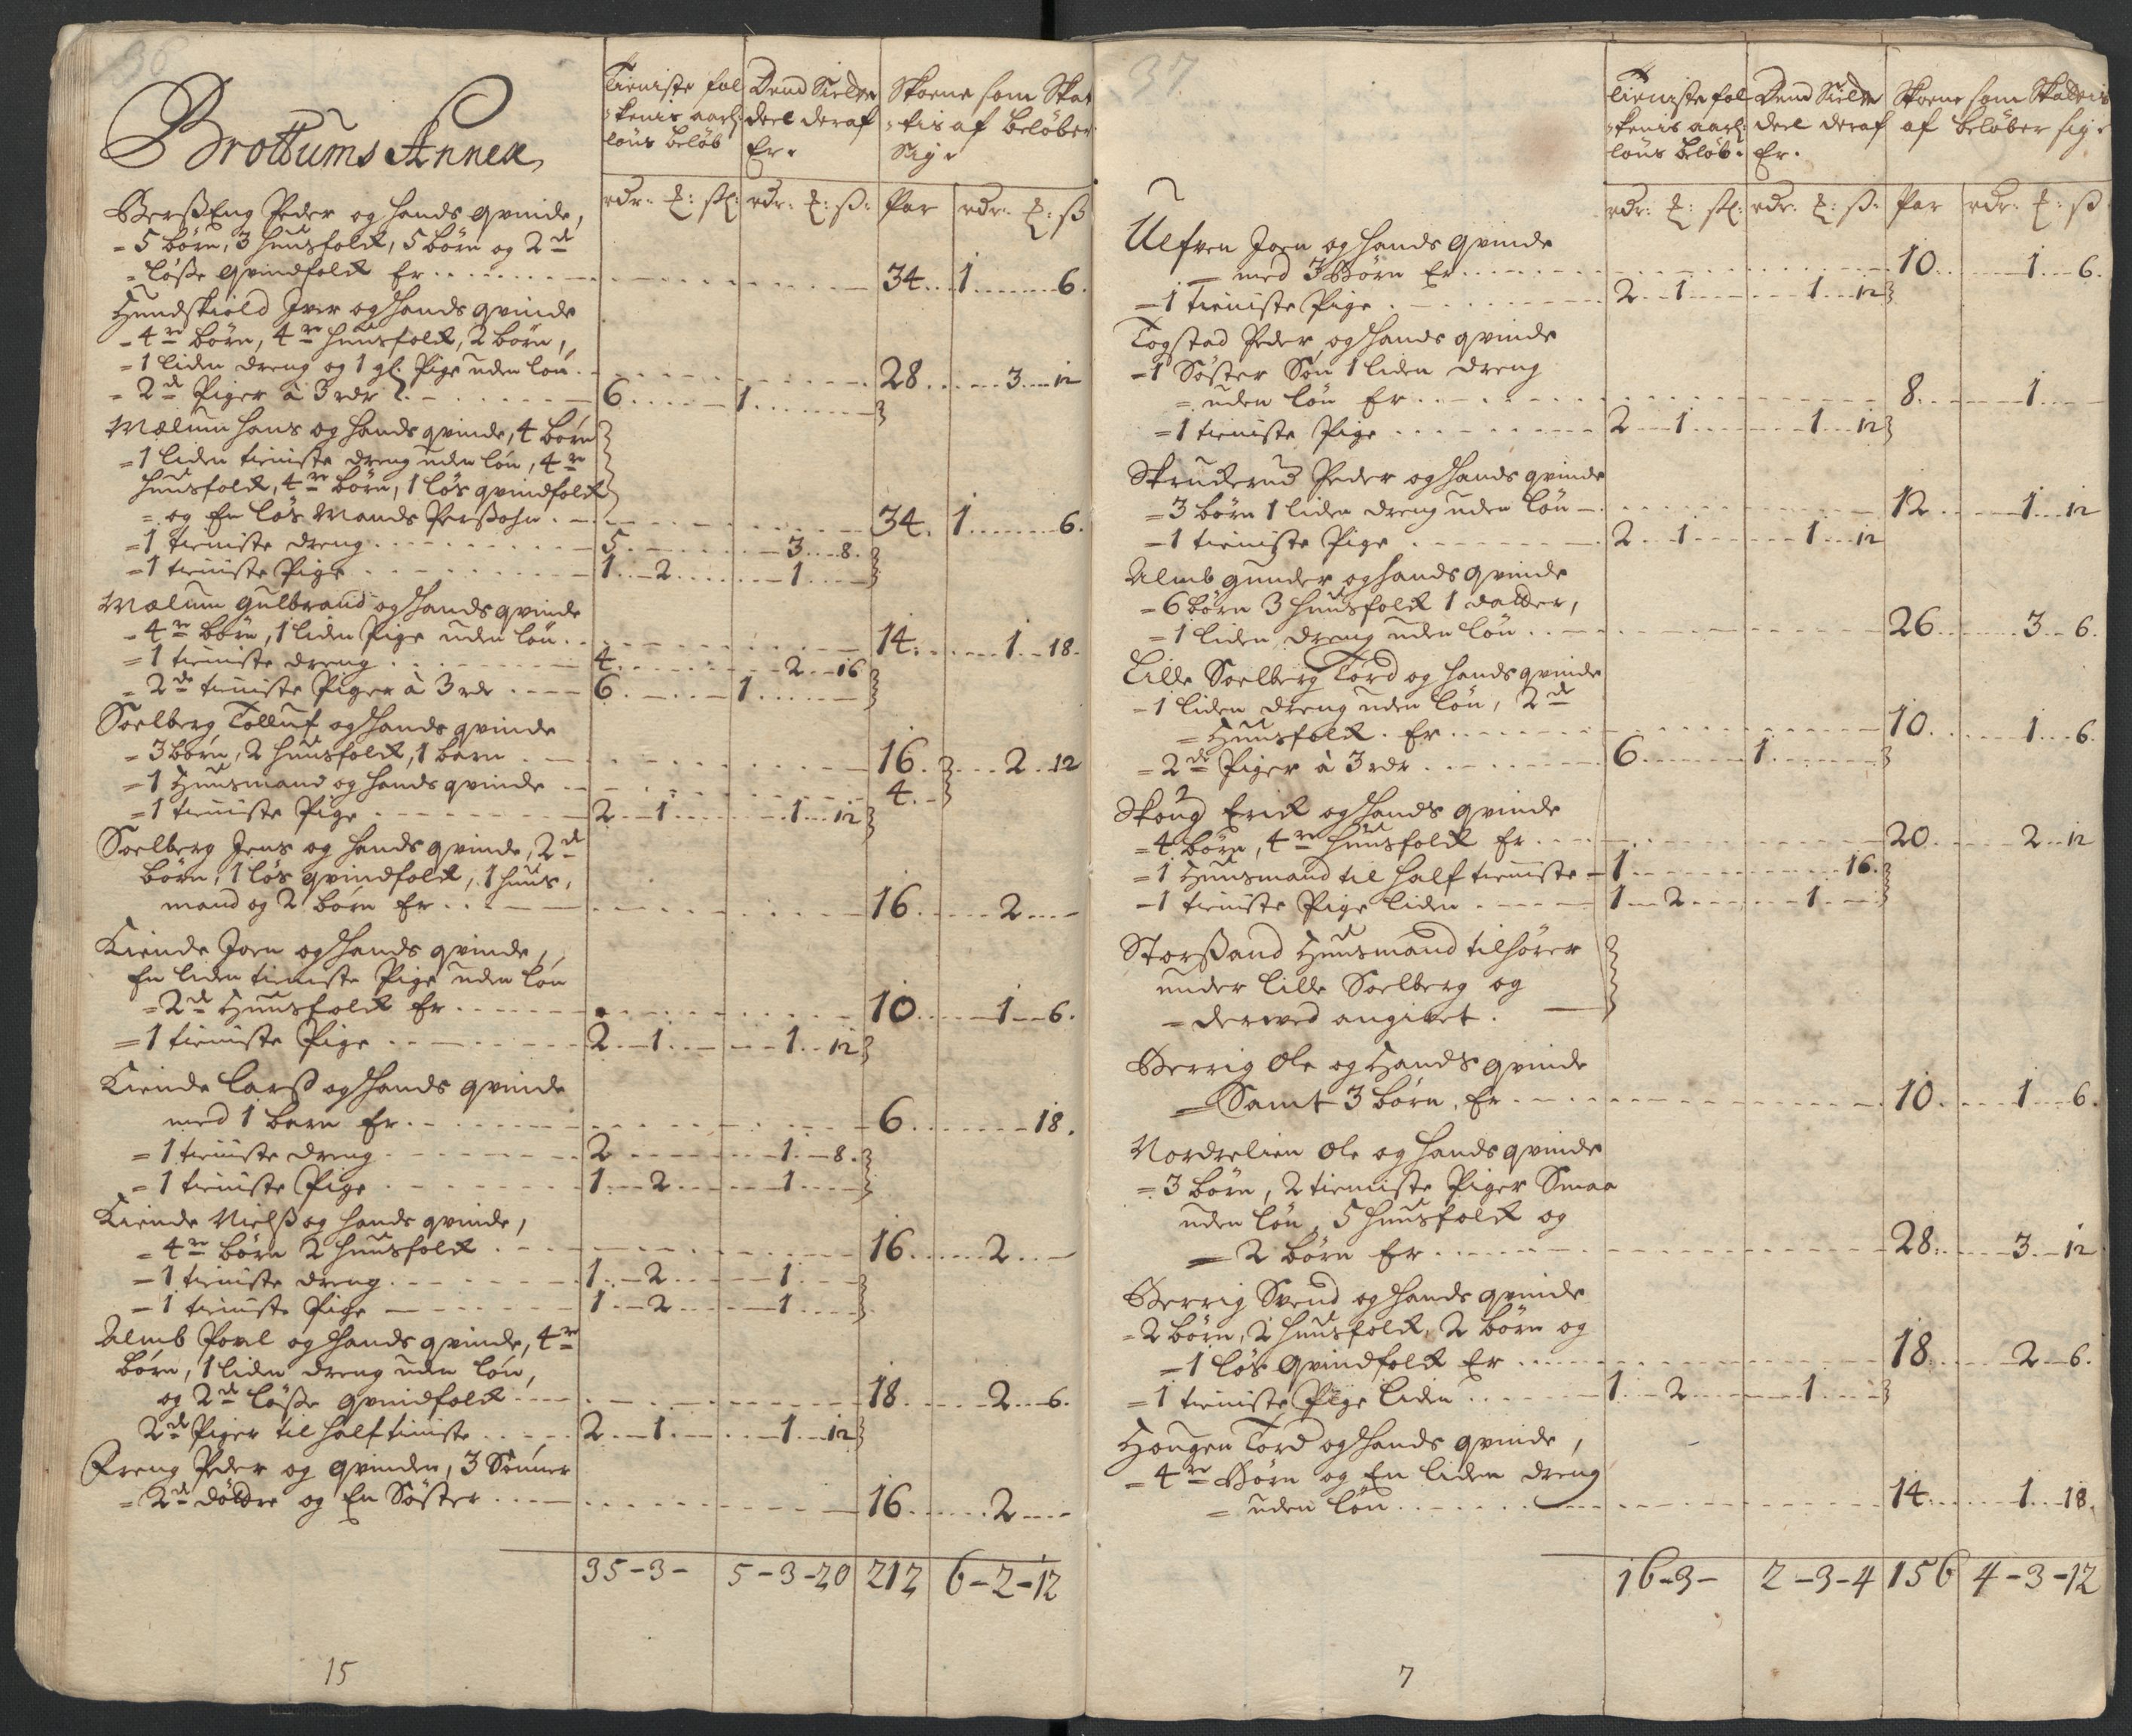 36
Brottums Annex
Tieniste fol
kenis aarl:
löns beløb
Dend Siette
deel deraf
Er.
Skoene som Skat
tis af beløber
Sig
rdr. ß: rdr. ß. Par rdr. ß
BerßEng Peder og hands qvinde,
- 5 börn, 3 huusfolk, 5 börn og 2de
- löße qvindfolk Er 34 1 6.
Hundskiold Iver og hands qvinde
- 4re börn, 4re huusfolk, 2 börn,
= 1 liden dreng og 1 gl: Pige uden lön 28 3 12
- 2de Piger à 3 rdr 6 1
Mælum Hans og hands qvinde, 4 börn
= 1 liden tieniste dreng uden lön, 4re
huusfolk, 4re börn, 1 lös qvindfolk
= og En lös Mands Perßohn 34 1 6.
= 1 tieniste dreng 5 3 8
= 1 tieniste Pige 1 2 1
Mælum Gulbrand og hands qvinde
- 4re börn, 1 liden Pige uden lön 14 1 18
= 1 tieniste dreng 4 2 16
- 2de tieniste Piger à 3 rdr 6 1
Soelberg Tolluf og hands qvinde
= 3 börn, 2 huusfolk, 1 barn 16 2 12
= 1 Huusmand og hands qvinde 4
= 1 tieniste Pige 2 1 1 12
Soelberg Jens og hands qvinde, 2de
börn, 1 lös qvindfolk, 1 huus,
mand og 2 börn Er 16 2
Kiende Joen og hands qvinde,
En liden tieniste Pige uden lön
= 2de Huusfolk Er 10 1 6.
= 1 tieniste Pige 2 1 1 12
Kiende Larß og hands qvinde
med 1 barn Er 6 18.
= 1 tieniste dreng 2 1 8
= 1 tieniste Pige 1 2 1
Kiende Nielß og hands qvinde,
= 4re börn 2 huusfolk 16 2
= 1 tieniste dreng 1 2 1
- 1 tieniste Pige 1 2 1
Almb Povl og hands qvinde, 4re
börn, 1 liden dreng uden lön,
og 2de löße qvindfolk 18 2 6.
2de Piger til half tieniste 2 1 1 12
Freng Peder og qvinden, 3 Sönner
= 2de döttre og En Söster 16 2
35-3- 5-3-20 212 6-2-12
15
37
Tieniste fol
kenis aarl:
löns beløb.
Dend Siette
deel deraf
Er.
Skoene som Skattis
af beløber sig
rdr: ß: rdr: ß. Par rdr: ß
Ulfven Joen og hands qvinde
= med 3 Börn Er 10 1 6.
= 1 tieniste Pige 2 1 1 12
Togstad Peder og hands qvinde
- 1 Söster Sön 1 liden dreng
= uden lön Er 8 1
= 1 tieniste Pige 2 1 1 12
Skruderud Peder og hands qvinde
= 3 börn 1 liden dreng uden lön 12 1 12
- 1 tieniste Pige 2 1 1 12
Almb Gunder og hands qvinde
= 6 börn 3 huusfolk 1 datter,
= 1 liden dreng uden lön 26 3 6.
Lille Soelberg Tord og hands qvinde
- 1 liden dreng uden lön, 2de
= Huusfolk Er 10 1 6.
= 2de Piger à 3 rdr 6 1
Skoug Erik og hands qvinde
= 4 börn, 4re huusfolk Er 20 2 12
= 1 Huusmand til half tieniste 1 16
- 1 tieniste Pige liden 1 2 1
Storßand Huusmand tilhörer
under lille Soelberg og
= derved angivet.
Berrig Ole og Hands qvinde
= Samt 3 börn, Er 10 1 6.
Nordrelien Ole og hands qvinde
= 3 börn, 2 tieniste Piger Smaa
uden lön, 5 huusfolk og
= 2 börn Er 28 3 12
Berrig Svend og hands qvinde
= 2 börn, 2 huusfolk, 2 börn og
- 1 lös Qvindfolk Er 18 2 6.
= 1 tieniste Pige liden 1 2 1
Hougen Tord og hands qvinde,
= 4re Börn og En liden dreng
= uden lön 14 1 18.
16-3- 2-3-4 156 4-3-12
7